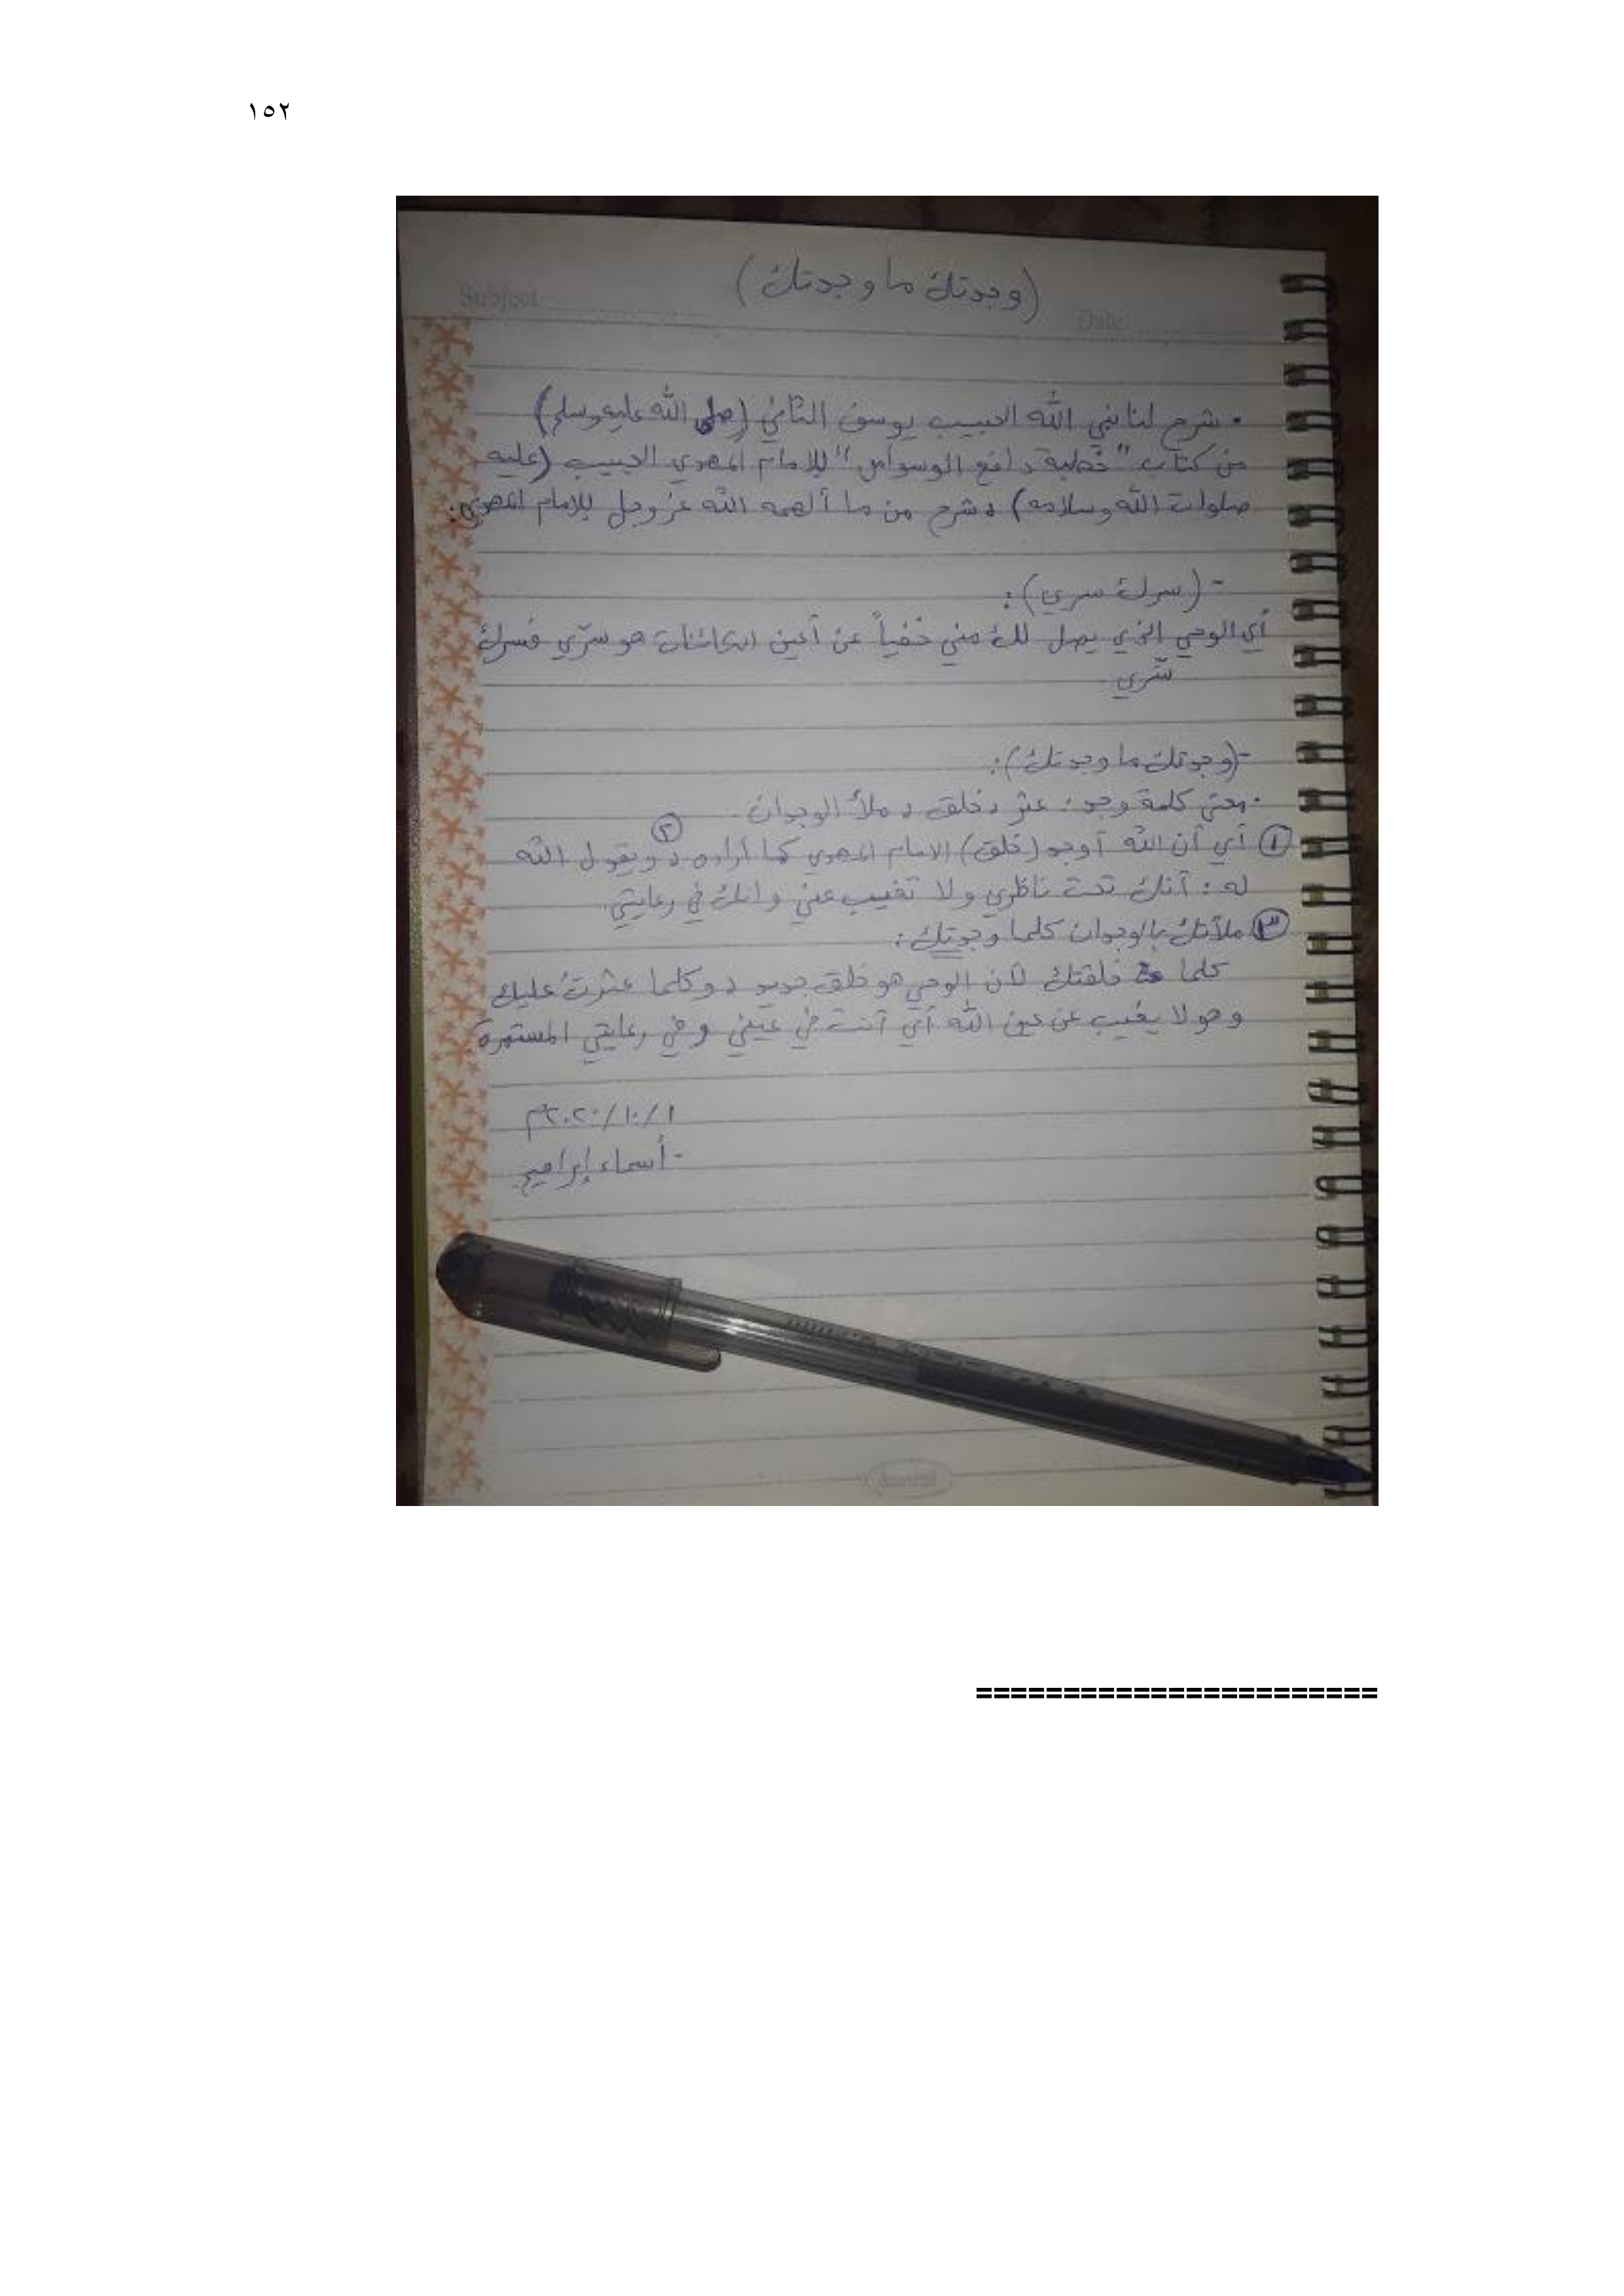 ١٥٢
(وجدتك ما وجدتك)
Subject
Date:
• شرح لنا نبي الله الحبيب يوسف الثاني (صلى الله عليه وسلم)
من كتاب "خطبة دافع الوسواس" للإمام المهدي الحبيب (عليه
صلوات الله وسلامه) ، شرح من ما ألهمه الله عز وجل للإمام المهدي:
- (سرك سري):
أي الوحي الذي يصل لك مني خفياً عن أعين الكائنات هو سرّي فسرك
سّري.
- (وجدتك ما وجدتك):
• معنى كلمة وجد: عثر ، خلق ، ملأ الوجدان.
① أي أن الله أوجد (خلق) الامام المهدي كما أراده ، ② ويقول الله
له : أنك تحت ناظري ولا تغيب عني وانك في رعايتي.
③ ملأتك بالوجدان كلما وجدتك:
كلما خلقتك لأن الوحي هو خلق جديد ، وكلما عثرتُ عليك
وهو لا يغيب عن عين الله أي أنت في عيني وفي رعايتي المستمرة.
١/١٠/٢٠٢٠م
- أسماء إبراهيم.
=======================